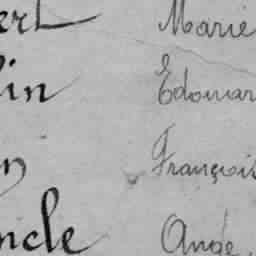 ert Marie
lin Edouar
n François
ncle Ange